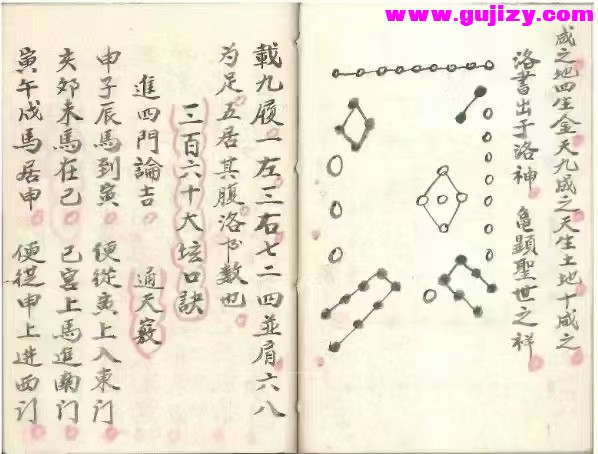 www.gujizy.com
成之地四生金天九成之天生土地十成之
洛書出于洛神 龜顯聖世之祥
載九履一左三右七二四並肩六八
为足五居其腹洛书數也
三百六十大坛口訣
進四門論吉 通天竅
申子辰馬到寅 便從寅上入東门
亥夘未馬在己 己宮上馬進南门
寅午戍馬居申 便从申上进西门